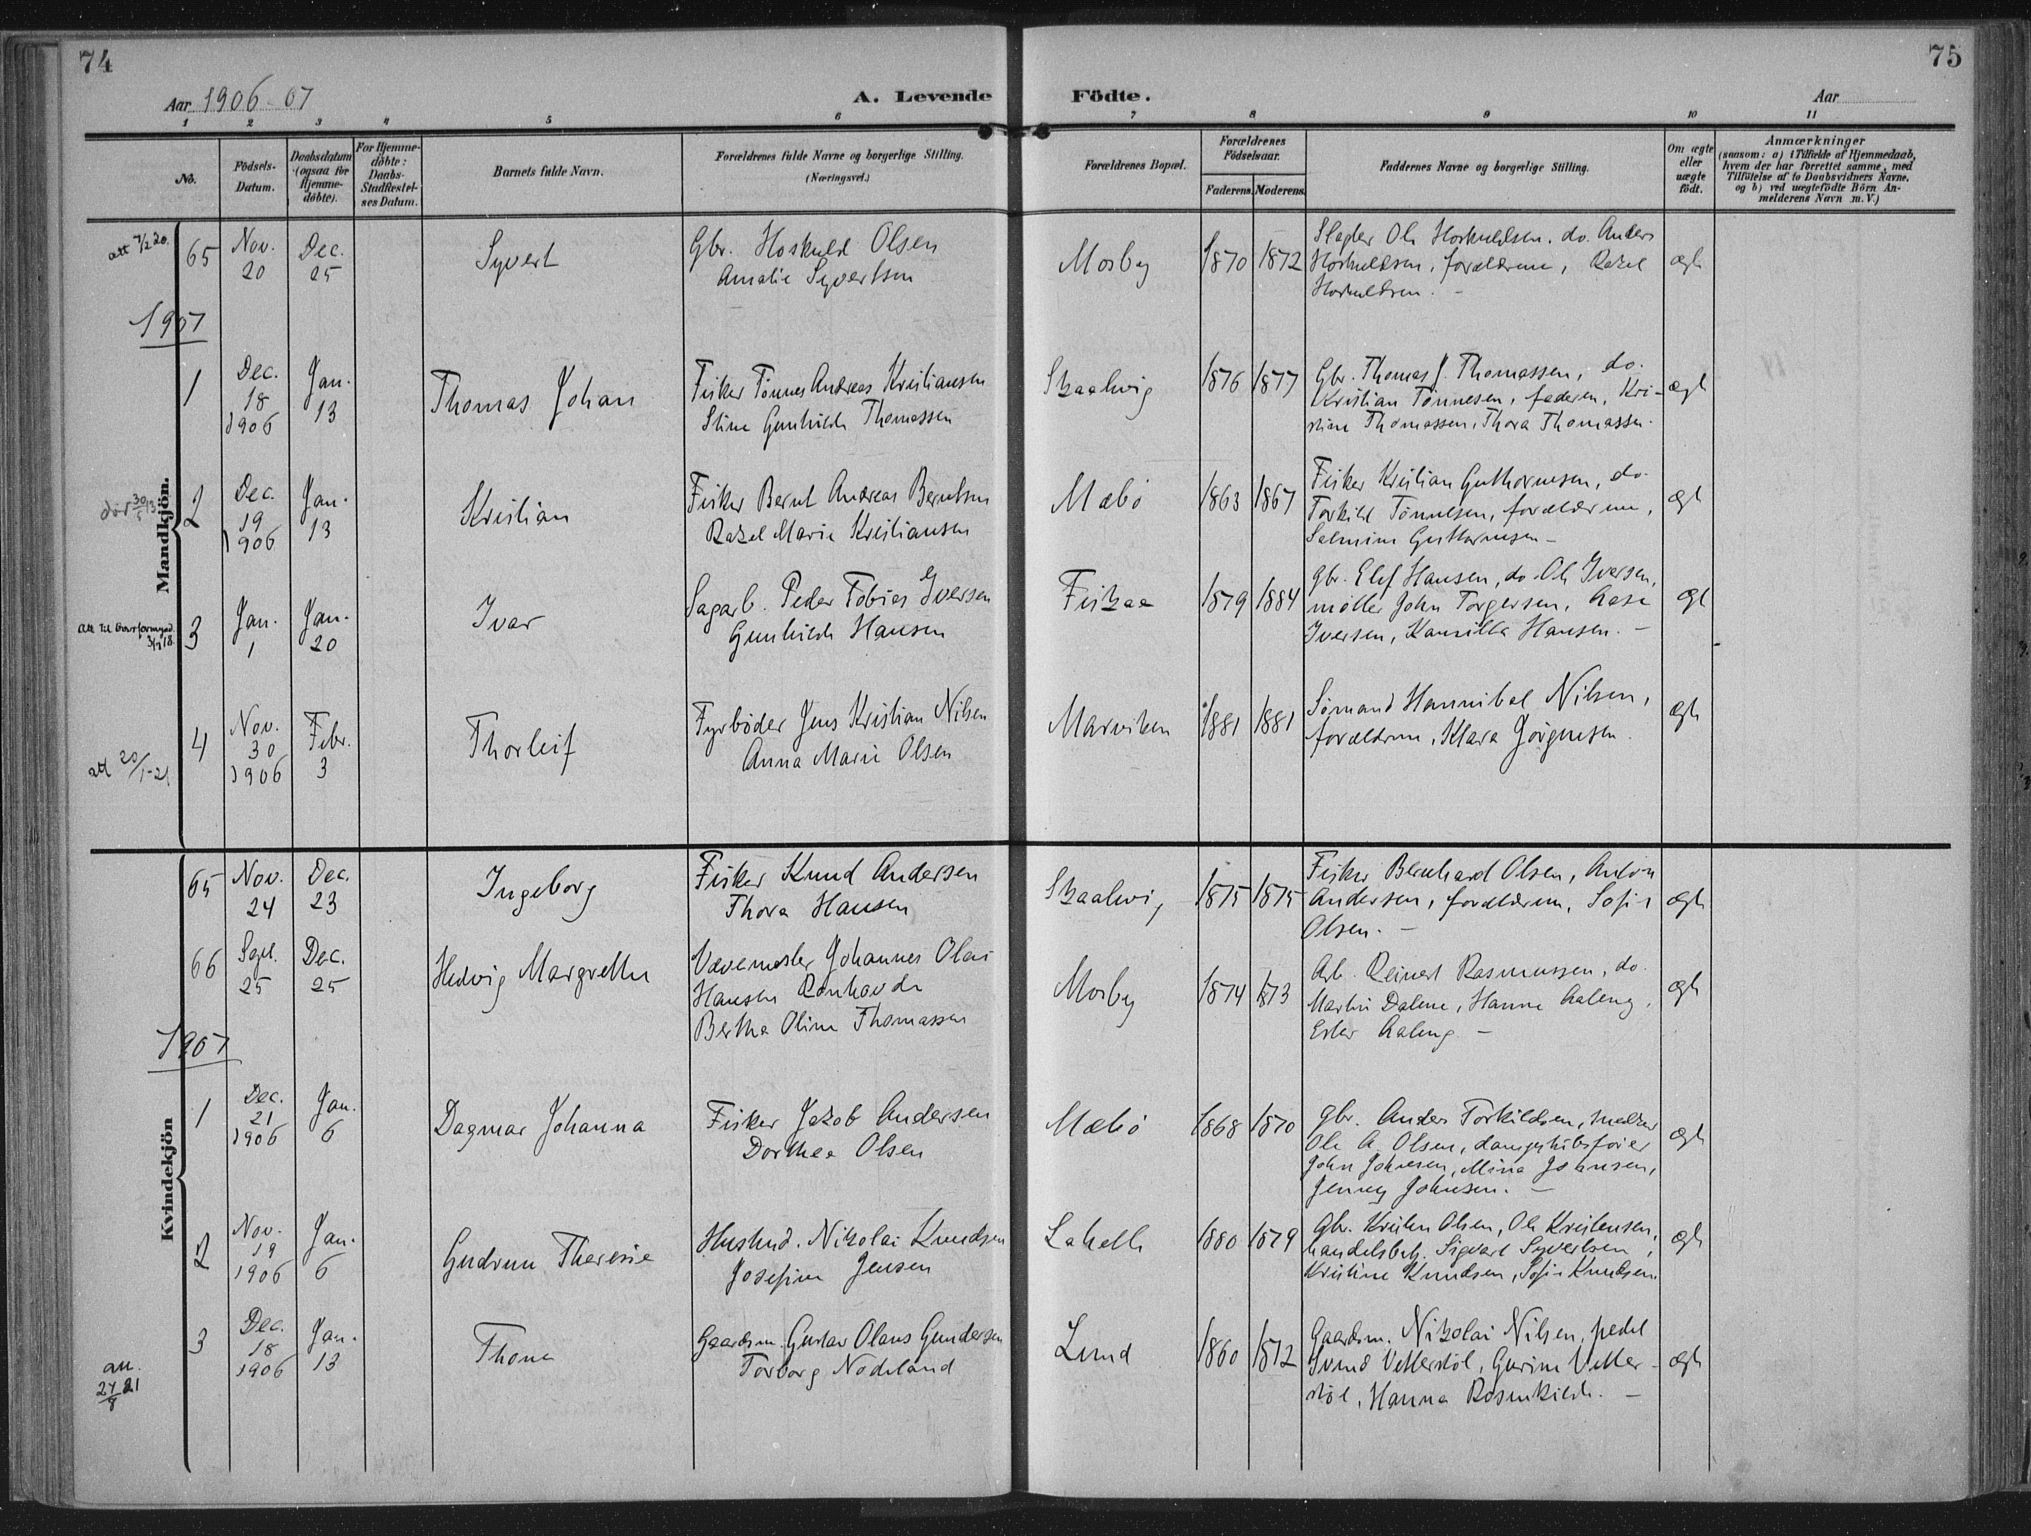 74
75
Aar 1906-07
A. Levende Födte.
Aar
1 2 3 4 5 6 7 8 9 10 11
No.
Födsels-
Datum.
Daabsdatum
(ogsaa for
Hjemme-
døbte).
For Hjemme-
døbte:
Daabs-
Stadfæstel-
ses Datum.
Barnets fulde Navn.
Forældrenes fulde Navne og borgerlige Stilling.
(Næringsvei.)
Forældrenes Bopæl.
Forældrenes
Födselsaar.
Faderens.
Moderens.
Faddernes Navne og borgerlige Stilling.
Om ægte
eller
uægte
födt.
Anmærkninger
(saasom: a) i Tilfælde af Hjemmedaab,
hvem der har forrettet samme, med
Tilføielse af to Daabsvidners Navne,
og b) ved uægtefödte Börn An-
melderens Navn m. V.)
Mandkjön.
att 7/2 20.
65
Nov.
20
Dec.
25
Syvert
Gbr. Hoskuld Olsen
Amalie Syvertsen
Mosby
1870
1872
Slagter Ole Hoskuldsen, do. Anders
Hoskuldsen, forældrene, Rakel
Hoskuldsen. -
ægte
1907
1
Dec.
18
1906
Jan.
13
Thomas Johan
Fisker Tønnes Andreas Kristiansen
Stine Gunhilde Thomassen
Skaalevig
1876
1877
Gbr. Thomas J. Thomassen, do.
Kristian Tønnesen, faderen, Kri-
stine Thomassen, Thora Thomassen.
ægte
2
Dec.
19
1906
Jan.
13
Kristian
Fisker Bernt Andreas Berntsen
Rakel Marie Kristiansen
Mæbø
1863
1867
Fisker Kristian Guthormsen, do.
Torkild Tønnesen, forældrene,
Salmine Guthormsen -
ægte
3
Jan.
1
Jan.
20
Ivar
Sagarb. Peder Tobias Iversen
Gunhilde Hansen
Fiskaa
1879
1884
Gbr. Elef Hansen, do. Ole Iversen,
møller John Torgersen, Aase
Iversen, Kamilla Hansen. -
ægte
att 20/1-21
4
Nov.
30
1906
Febr.
3
Thorleif
Fyrbøder Jens Kristian Nilsen
Anna Marie Olsen
Marviken
1881
1881
Sømand Hannibal Nilsen,
forældrene, Klara Jørgensen.
ægte
Kvindekjön
65
Nov.
24
Dec.
23
Ingeborg
Fisker Knud Andersen
Thora Hansen
Skaalevig
1875
1875
Fisker Bernhard Olsen, Anton
Andersen, forældrene, Sofie
Olsen. -
ægte
66
Sept.
25
Dec.
25
Hedvig Margrethe
Vævemester Johannes Olai
Hansen
Bertha Oline Thomassen
Mosby
1874
1873
Arb. Reinert Rasmussen, do.
Martin Dalene, Hanne Aaleng,
Ester Aaleng -
ægte
1907
1
Dec.
21
1906
Jan.
6
Dagmar Johanna
Fisker Jakob Andersen
Dorthea Olsen
Mæbø
1868
1870
Gbr. Anders Torkildsen,
Ole A. Olsen, dampskibsfører
John Johnsen, Mina Johnsen,
Jenny Johnsen. -
ægte
2
Nov.
19
1906
Jan.
6
Gudrun Theresie
Nikolai Knudsen
Josefine Jensen
1880
1879
Gbr. Kristen Olsen, Ole Kristensen,
handelsbetj. Sigvart Syvertsen,
Kristine Knudsen, Sofie Knudsen.
ægte
3
Dec.
18
1906
Jan.
13
Thone
Gaardm. Gustav Olaus Gundersen
Torborg Nodeland
Lund
1860
1872
Gaardm. Nikolai Nilsen, pedel
Svend Vetterstøl, Gurine Vetter-
støl, Hanna Rosenkilde. -
ægte